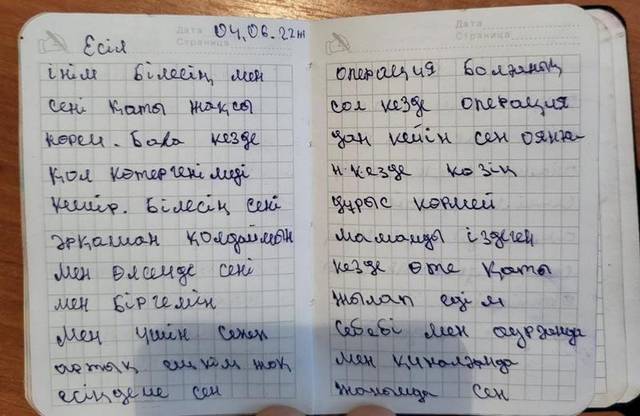 04.06.22ж
Есіл
інім білесің мен
сені қаты жақсы
көрем. Бала кезде
қол көтергенімді
кешір. Білесің сені
әрқашан қолдаймын
мен өлсемде сені
мен біргемін
Мен үшін сенен
артық ешкім жоқ
есіңдеме сен
Дата
Страница
операция болғаның
сол кезде операция
дан кейін сен оянға
н.кезде көзің
дұрыс көрмей
мамамды іздеген
кезде өте қаты
жылап едім
себебі мен аурғанда
мен қиналғанда
жанымда сен